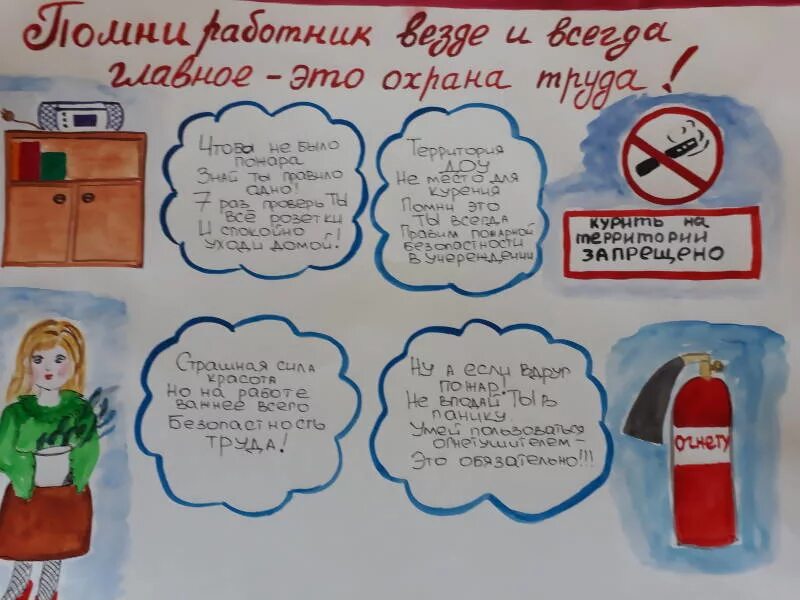 Помни работник везде и всегда
главное - это охрана труда!
Чтова не было
пожара
Знай ты правило
одно!
7 раз проверь ТЫ
всё розетки
И спокойно
уходи домой!
Территория
ДОУ
Не место для
курения
Помни это
ТЫ всегда
Правим пожарной
безопастности
в учереждении
курить на
территории
запрещено
Страшная сила
красота
Но на работе
важнее всего
Безопастность
труда!
Ну а если вдруг
пожар!
Не впадай ТЫ в
панику.
Умей пользоваться
огнетушителем -
Это обязательно!!!
огнету